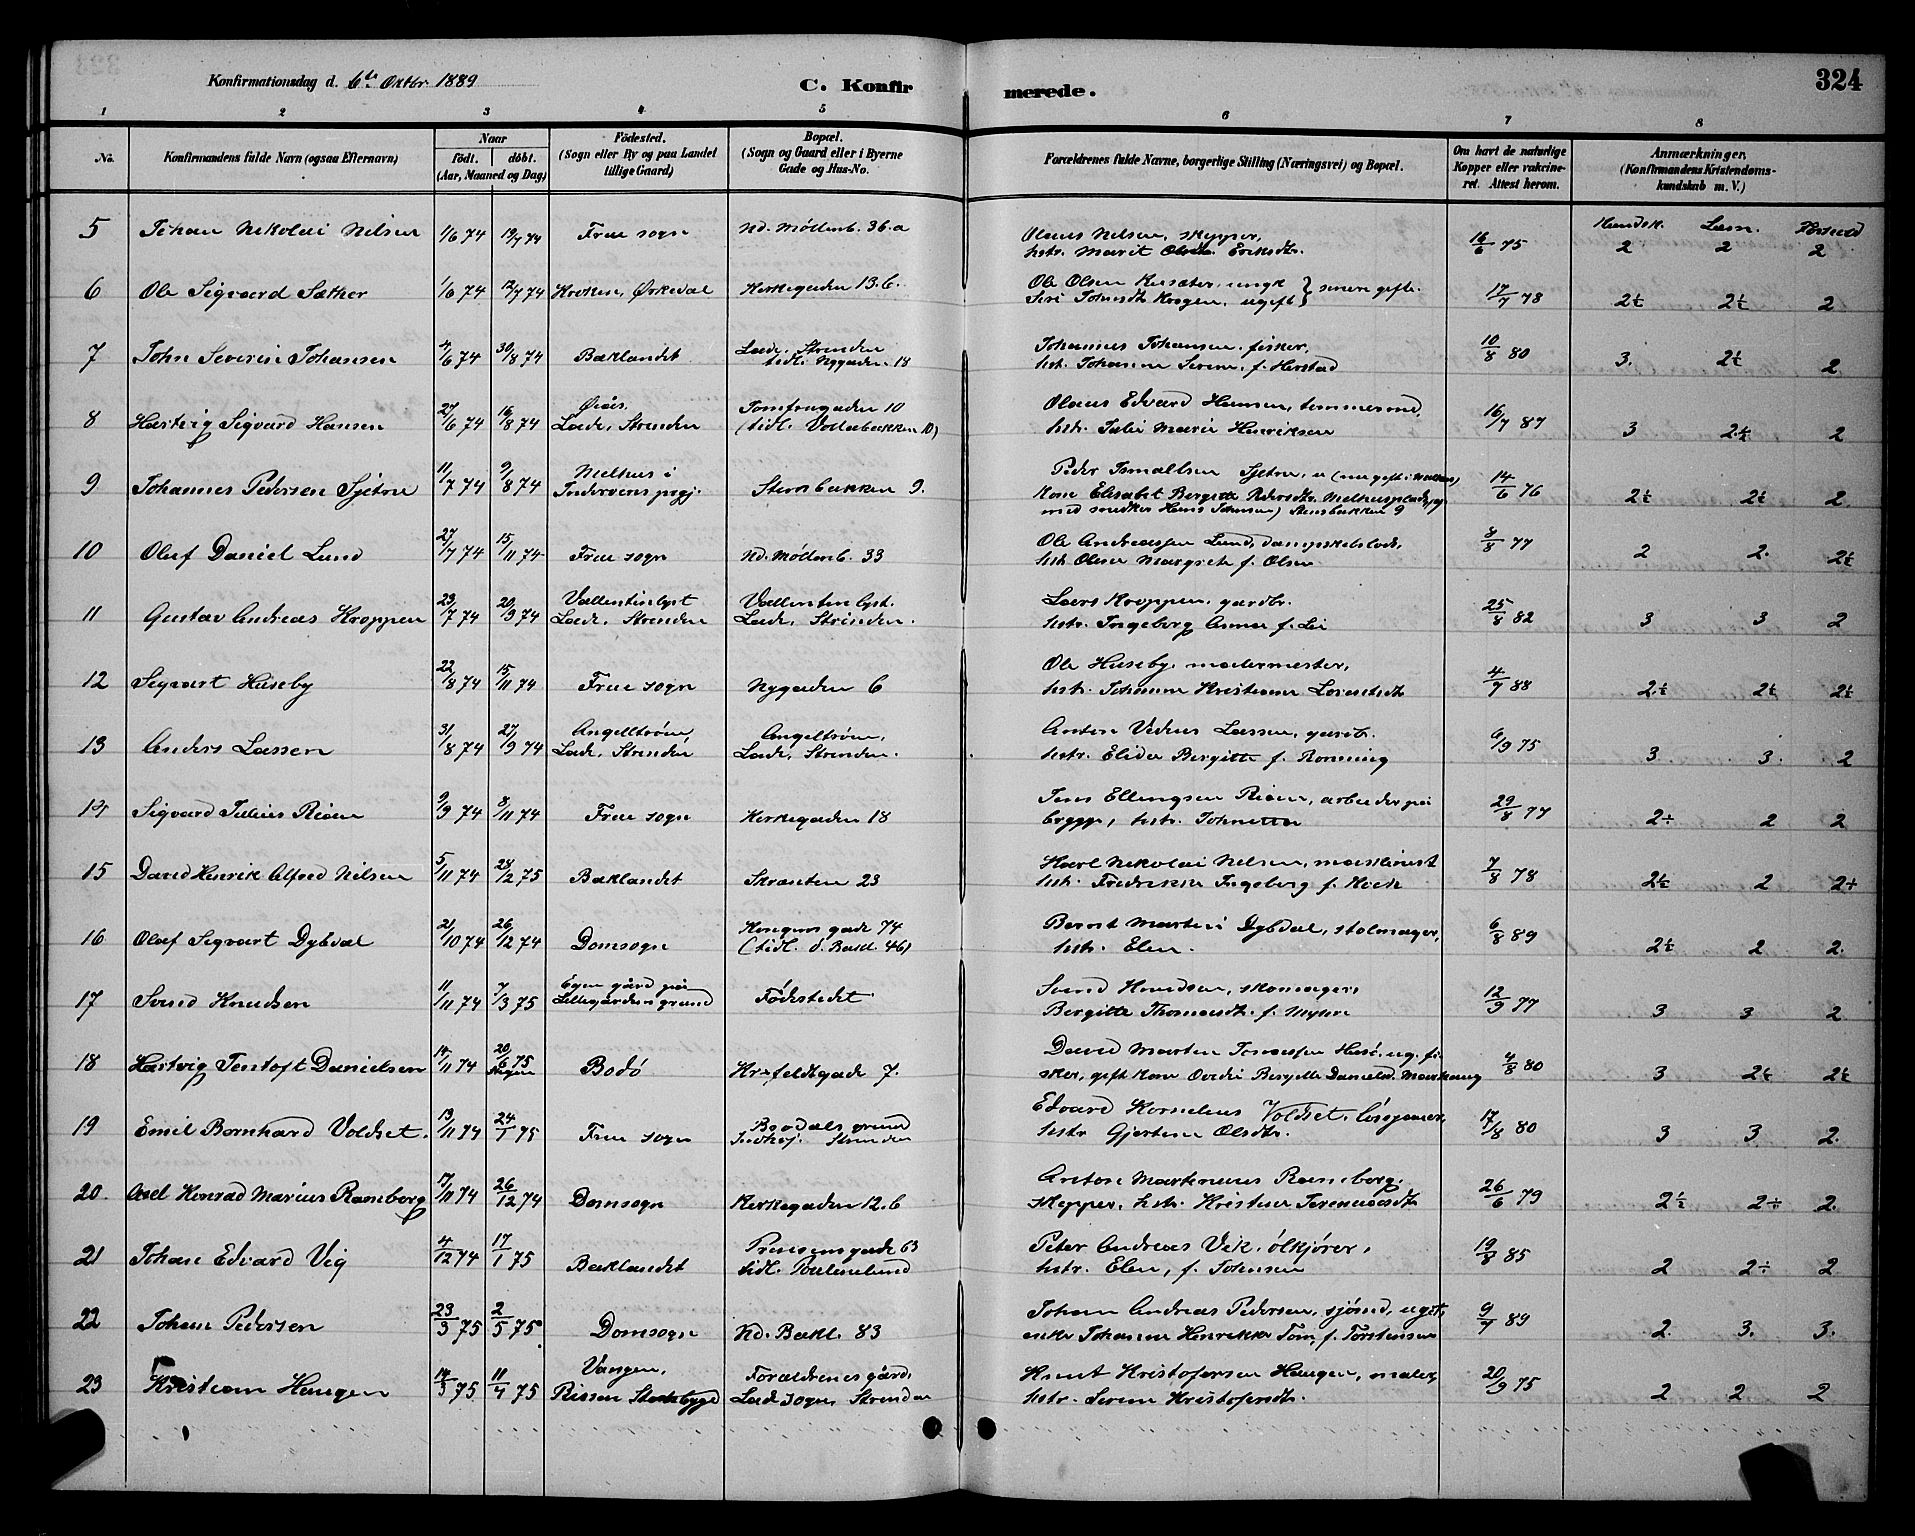 324
Konfirmationsdag d. 6te Oktbr 1889
C. Konfirmerede.
1 2 3 4 5 6 7 8
No.
Konfirmandens fulde Navn (ogsaa Efternavn)
Naar
født. døbt.
(Aar, Maaned og Dag)
Fødested.
(Sogn eller By og paa Landet
tillige Gaard)
Bopæl.
(Sogn og Gaard eller i Byerne
Gade og Hus-No.
Forældrenes fulde Navne, borgerlige Stilling (Næringsvei) og Bopæl.
Om havt de naturlige
Kopper eller vakcine-
ret. Attest herom.
Anmærkninger,
(Konfirmandens Kristendoms-
kundskab m. V.)
Kundsk. Læsn. Forhold
5 Johan Nikolai Nilsen 1/6 74 19/7 74 Frue sogn Nd. Møllenb. 36.a
Olaus Nilsen, skipper,
hstr. Marit Eriksdtr. 16/6 75 2 2 2
6 Ole Sigvard Sæther 1/6 74 12/7 74 Kroken,Ørkedal Kirkegaden 13.b.
Ole Olsen, ungk } senere gifte.
Siri Johnsdt Krogen, ugift 17/7 78 2½ 2½ 2
7 John Severin Johansen 4/6 74 30/8 74 Baklandet Lade, Strinden
tidl. Nygaden 18
Johannes Johansen, fisker,
hst. Johanna Serine, f. Herstad 10/8 80 3. 2½ 2
8 Hartvig Sigvard Hansen 27/6 74 16/8 74 Øiås,
Lade, Strinden Jomfrugaden 10
(tidl. Vollabakken 10)
Olaus Edvard Hansen, tømmermd,
hstr. Julie Marie Henriksen 16/7 87 3 2.½ 2
9 Johannes Pedersen Sjetne 11/7 74 9/8 74 Melhus i
Inderøens prgj. Stensbakken 9.
Peder Ismaelsen Sjetne,
Kone Elisabet Bergitte Pedersdtr. Melhusplads,
med snedker Hans Johnsen) Stensbakken 9 14/6 76 2½ 2½ 2.
10 Oluf Daniel Lund 27/7 74 15/11 74 Frue sogn Nd. Møllenb. 33
Ole Andreassen Lund,
hst. Oline Margrete f. Olsen 77 2 2. 2½
11 Gustav Andreas Kroppen 29/7 74 20/9 74 Vallentinlyst
Lade, Strinden Vallentinlyst.
Lade, Strinden.
Lars Kroppen, gardbr.
hstr. Ingeborg Anna f. Lie 25/8 82 3 3 2
12 Sigvart Huseby 22/8 74 15/11 74 Frue sogn Nygaden 6
Ole Huseby, malermester,
hstr. Johanna Kristiane Lorentsdt 88 2.½ 2½ 2½
13 Anders Lassen 31/8 74 27/9 74 Angelltrøen
Lade, Strinden Angeltrøen,
Lade, Strinden.
Anton Lassen, gardb.
hstr. Elida Bergitte f. Rønning 6/9 75 3 3. 2
14 Sigvard Julius Riøen 9/9 74 8/11 74 Frue sogn Kirkegaden 18
Jens Ellingsen Riøen, arbeider på
brygge, hstr. Johnetta 29/8 77 2÷ 2 2
15 David Henrik Alfred Nilsen 5/11 74 28/2 75 Baklandet Skansten 23
Karl Nikolai Nilsen, maskinist
hst. Fredrikke Ingeborg f. Hoek 7/8 78 2½ 2 2÷
16 Olaf Sigvart Dybdal 21/10 74 26/12 74 Domsogn Kongens gade 74
(tidl. Ø. Bakl. 46)
Bernt Martin Dybdal, stolmager,
hstr. Elen. 6/8 89 2½ 2 2.
17 Svend Knudsen 11/11 74 7/3 75 Egen gård på
Lillegårdens grund Fødestedet
Svend Knudsen, skomager,
Bergitte Thomasdt. f. Myhre 12/9 77 3 3 2
18 Hartvig Tentoft Danielsen 14/11 74 20/6 75 Bodø Kr. feldtgade 7.
David Martin ug. fi-
sker, gift Kone Bergitte Danielsd. 80 3 2½ 2½
19 Emil Bernhard Voldset. 13/11 74 24/1 75 Frue sogn grund
Strinden
Edvard Kornelius Voldset,
hstr Gjertine Olsdtr. 17/8 80 3 3 2.
20. Axel Konrad Marius Ramberg 17/11 74 26/12 74 Domsogn Kirkegaden 12.b
Anton Martinius Ramberg,
skipper, hstr. Kristine 26/6 79 2½ 2÷ 2.
21 Johan Edvard Vig 4/12 74 17/1 75 Baklandet Prinsensgade 63
tidl. Paulinelund
Peter Andreas Vik, ølkjører,
hstr. Elen, f. Johnsen 19/8 85 2 2÷ 2
22 Johan Pedersen 23/3 75 2/5 75 Domsogn Nd. Bakl. 83
Johan Andreas Pedersen, sjømd, ugift,
enke Johanna Henrikke Tom, f. Torstensen 9/7 89 2. 3. 3.
23 Kristian Haugen 14/3 75 11/4 75 Vangen,
Rissen Stadsbygd Forældrenes gård,
Lade sogn, Strinden
Knut Kristofersen Haugen, maler,
hstr. Serine Kristofersdtr. 20/9 75 2 2 2